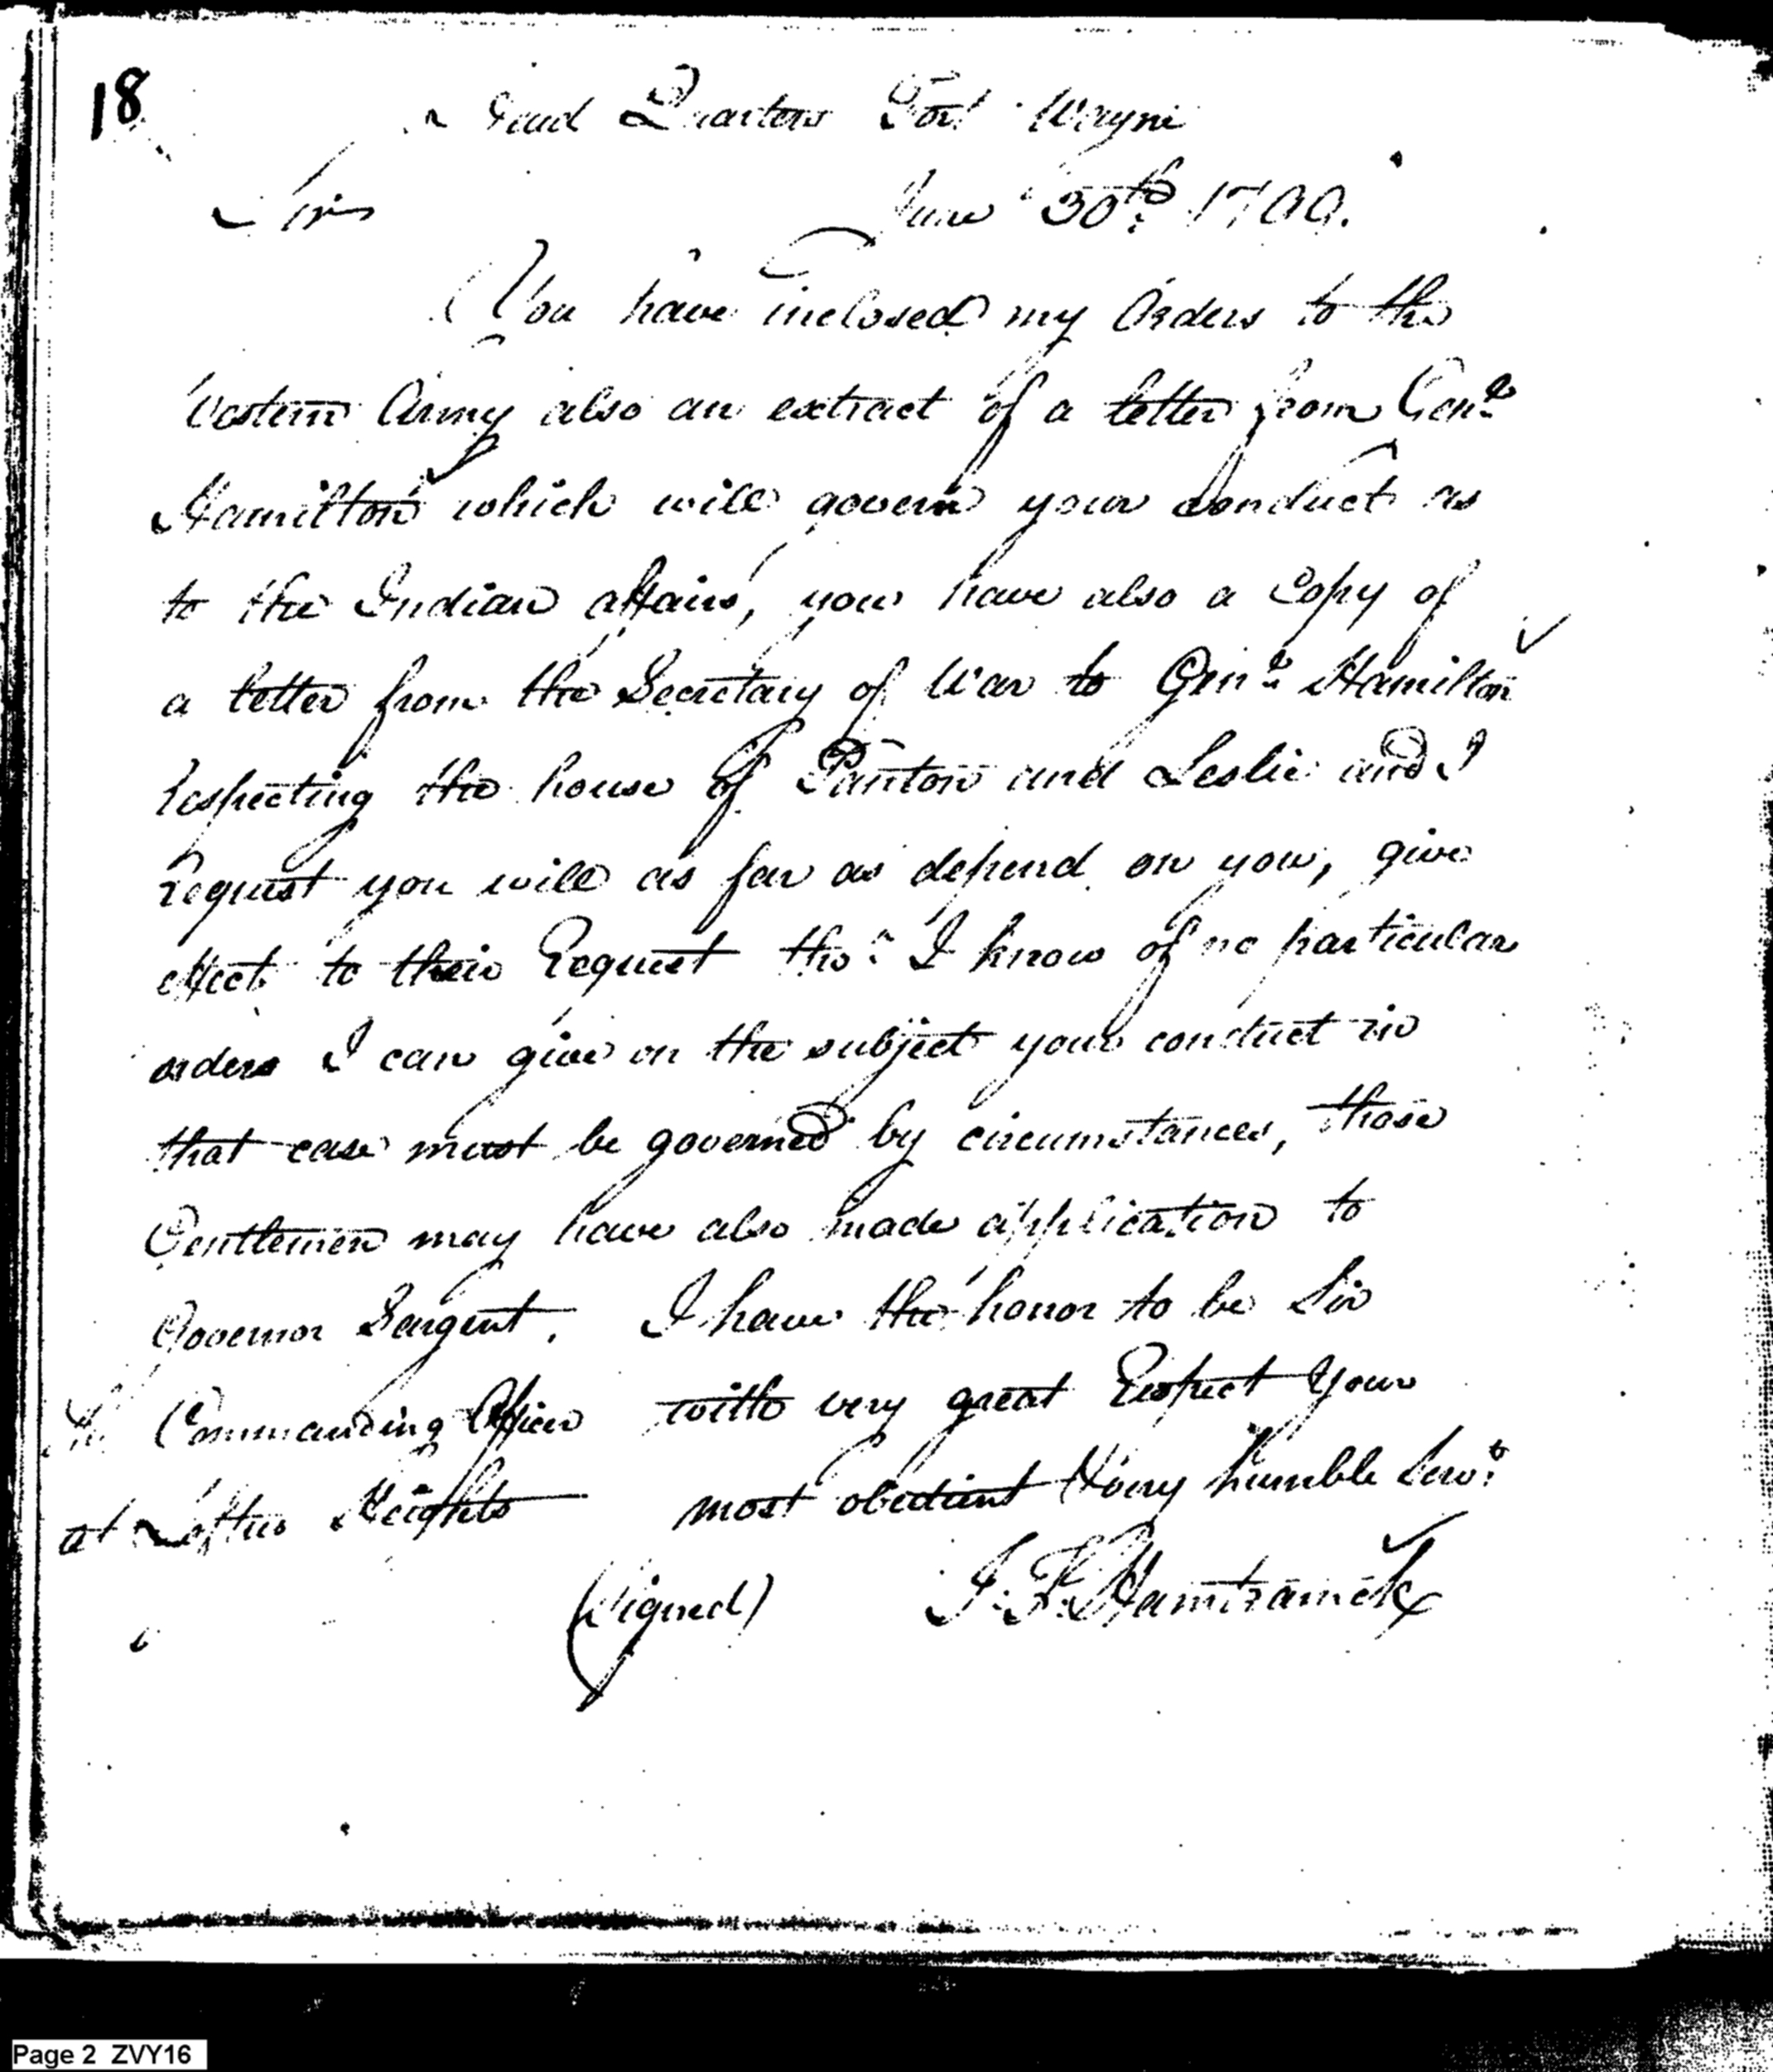 18
Head Quarters Fort Wayne
Sir June 30th 1799.
You have inclosed my Orders to the
Western Army also an extract of a letter from Genl
Hamilton which will govern your Conduct as
to the Indian affairs, you have also a Copy of
a letter from the Secretary of War to Genl Hamilton
Respecting the house of Panton and Leslie and I
Request you will as far as depend on you, give
effect to their Request tho' I know of no particular
orders I can give on the subject your conduct in
that case must be governed by circumstances, those
Gentlemen may have also made application to
Governor Sargent. I have the honor to be Sir
The Commanding Officer with very great Respect Your
at Loftus Heights most obedient & very humble Servt
(Signed) J. F. Hamtramck
Page 2 ZVY16